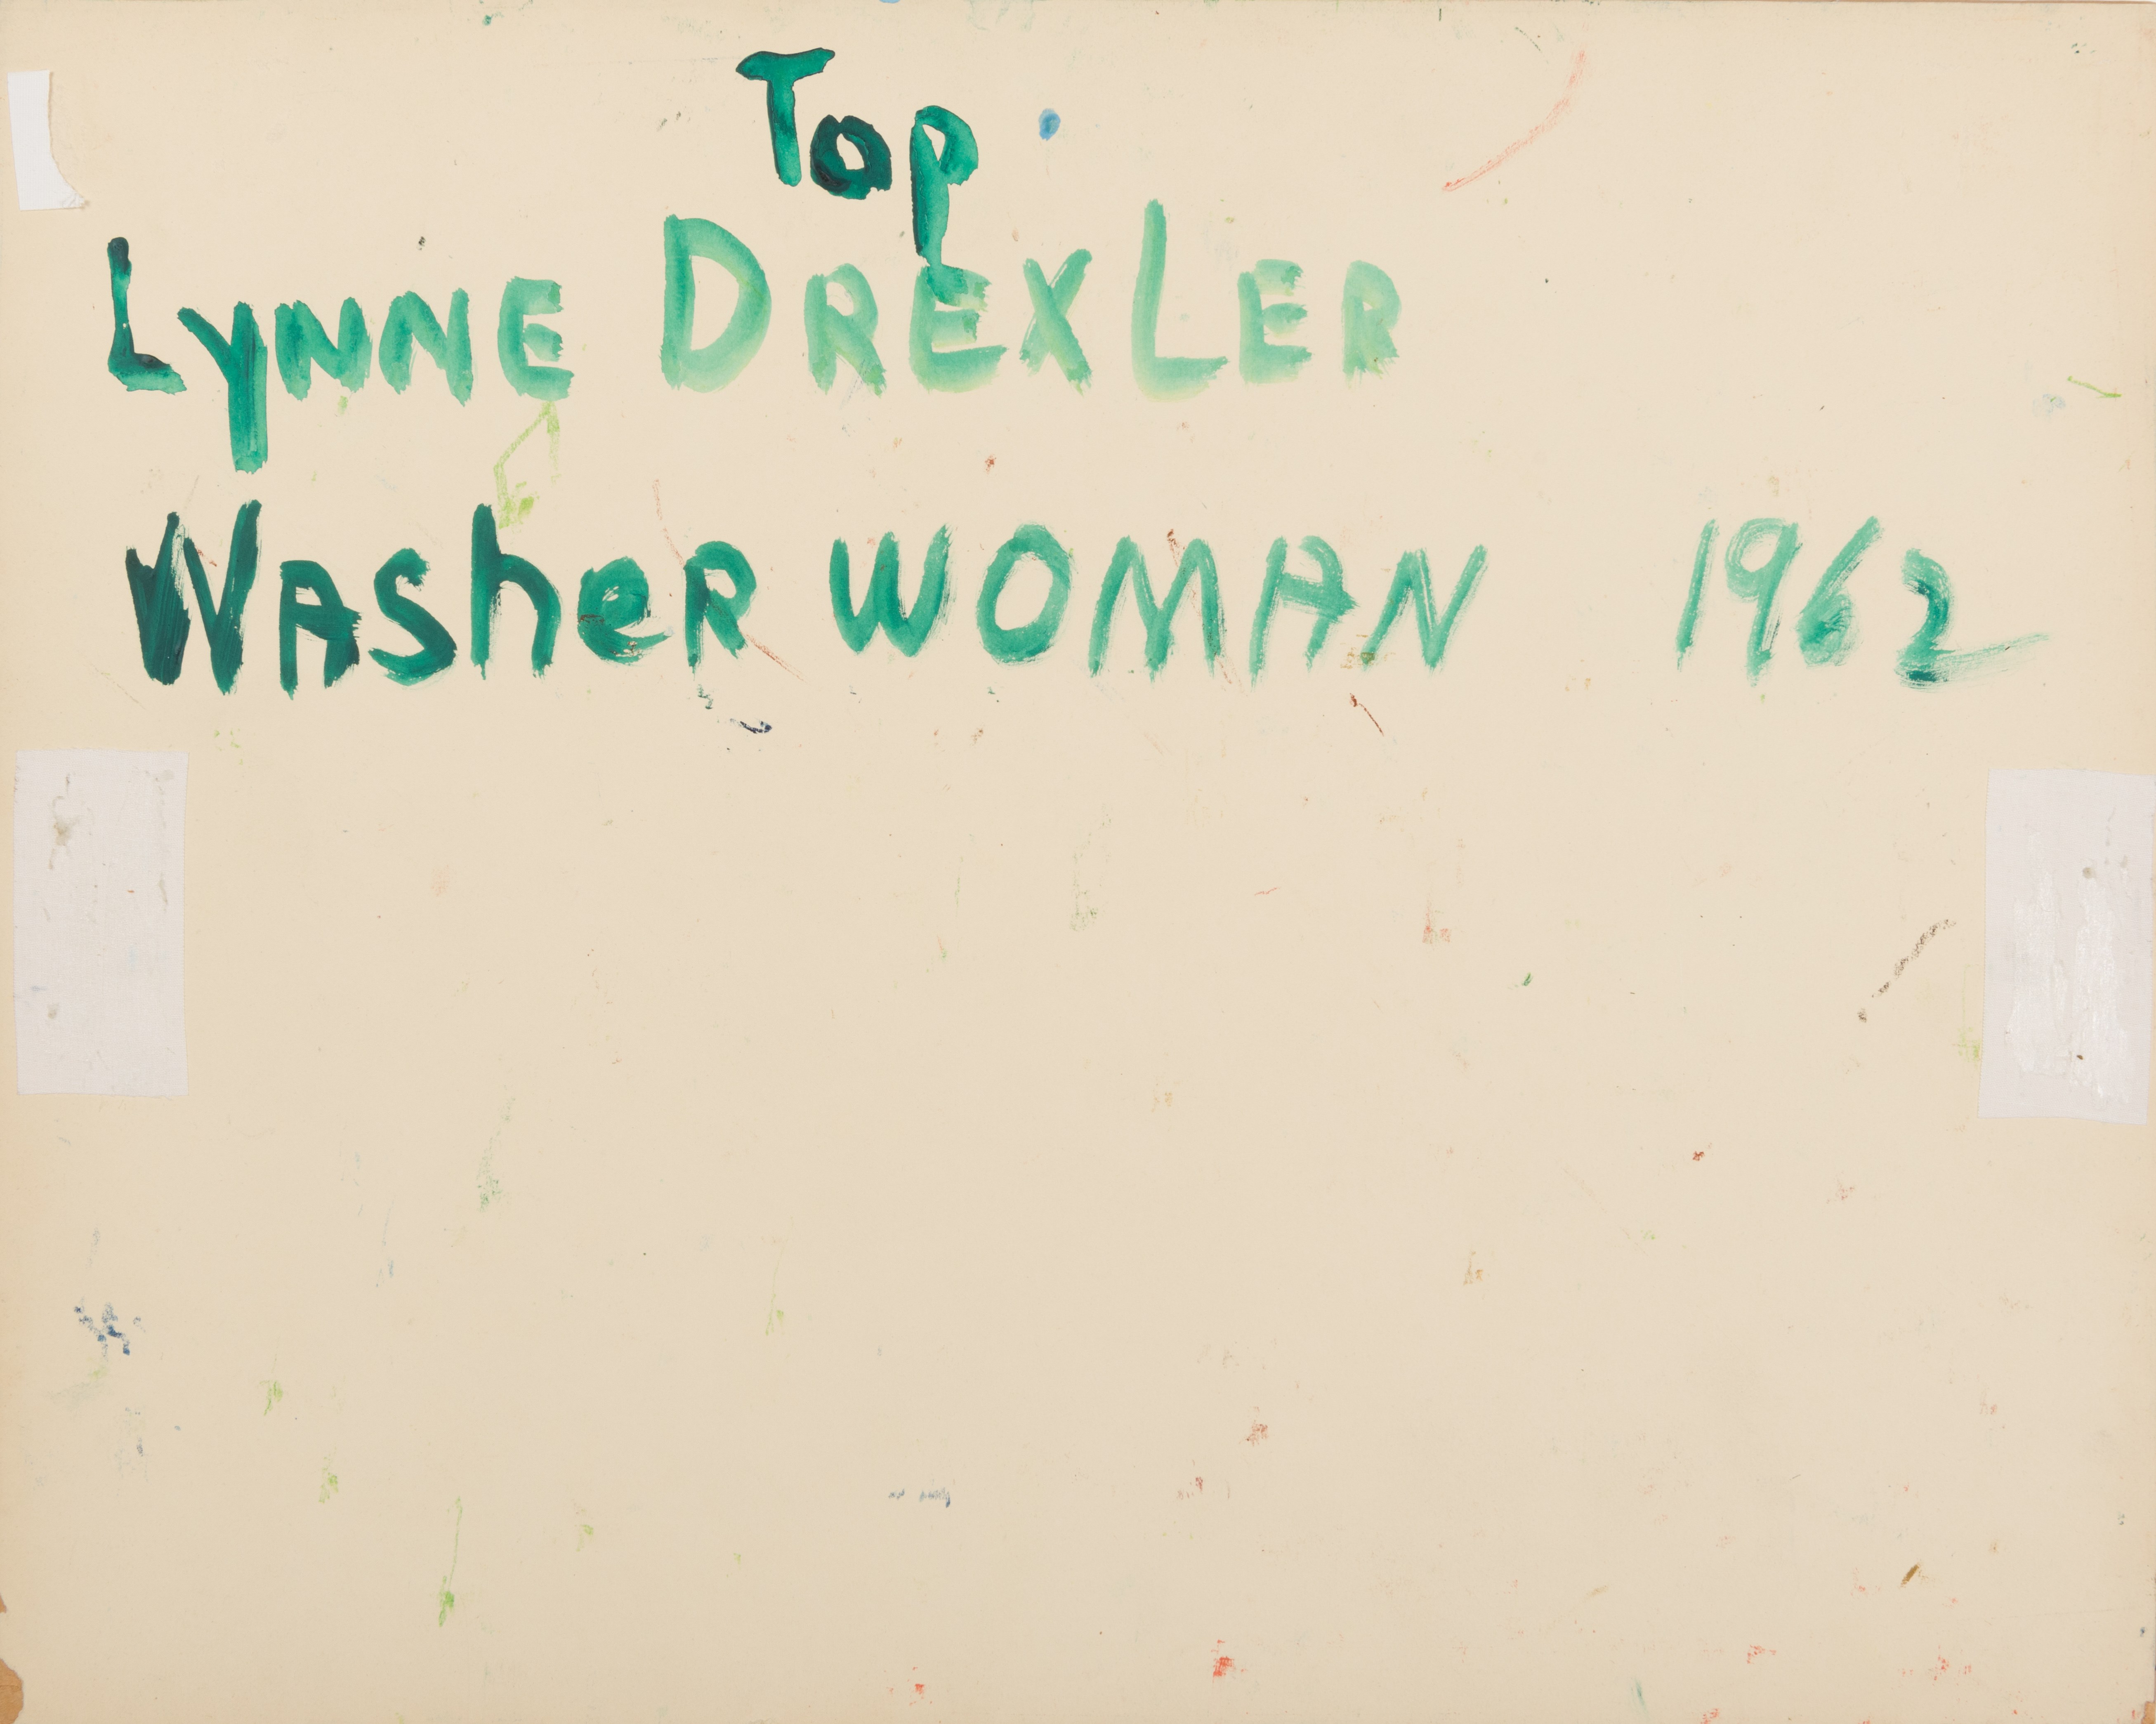 Top
Lynne DREXLER
WAsheR WOMAN 1962